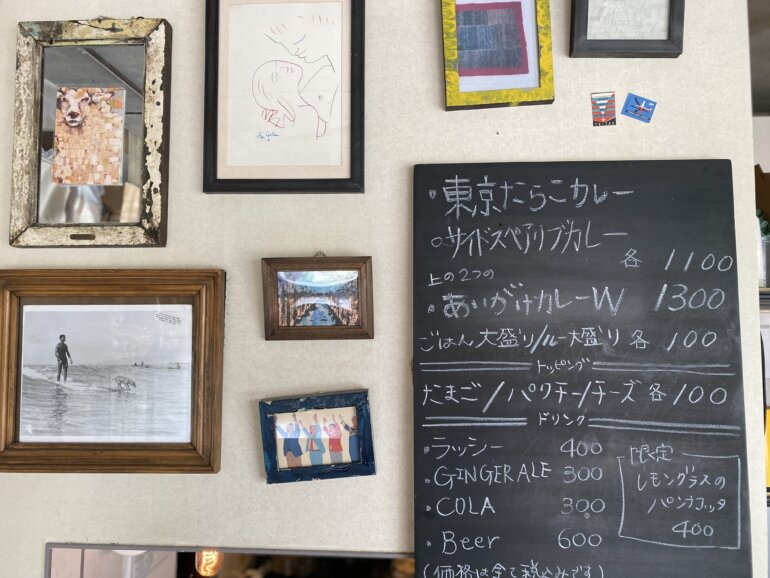 ・東京たらこカレー
・サイドスペアリブカレー
各 1100
上の2つの
・あいがけカレーW 1300
ごはん大盛り/ルー大盛り 各 100
トッピング
たまご/パクチー/チーズ 各100
ドリンク
・ラッシー 400
・GINGER ALE 300
・COLA 300
・Beer 600
(価格は全て税込みです)
限定
レモングラスの
パンナコッタ
400